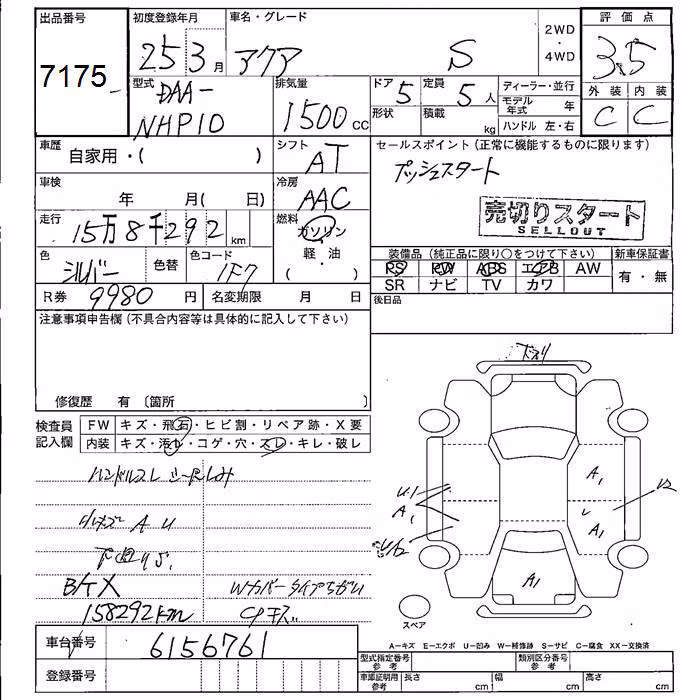 出品番号 初度登録年月 車名・グレード 評価点
7175 25 3月 アクア S 2WD ・ 4WD 3.5
外装 内装
C C
型式 DAA- NHP10 排気量 1500 CC ドア 5 定員 5人 ディーラー・並行
形状 積載 kg モデル年式 年
ハンドル 左・右
車歴 自家用・( ) シフト AT セールスポイント(正常に機能するものに限ります)
プッシュスタート
車検 年 月( 日) 冷房 AAC
売切りスタート
SELLOUT
走行 15万8千292 km 燃料 ガソリン ・ 軽・油 ( )
装備品(純正品に限り○をつけて下さい) 新車保証書
色 シルバー 色替 色コード 1F7
PS PW ABS エアB AW 有・無
SR ナビ TV カワ
R券 9980 円 名変期限 月 日 後日品
注意事項申告欄(不具合内容等は具体的に記入して下さい)
修復歴 有 〔箇所 〕
検査員記入欄 FW キズ・飛石・ヒビ割・リペア跡・X要
内装 キズ・汚れ・コゲ・穴・スレ・キレ・破レ
ハンドルスレ シートしみ
小キズ A U
下廻りサビ
B/ケX Wカバー タイアちがい
158292km CPキズ
下スリ
U1
A1
A1
A1
A1
スペア
A-キズ E-エクボ U-凹み W-補修跡 S-サビ C-腐食 XX-交換済
車台番号 6156761
型式指定番号 参考 類別区分番号 参考
登録番号
車庫証明用 参考 長さ cm 幅 cm 高さ cm